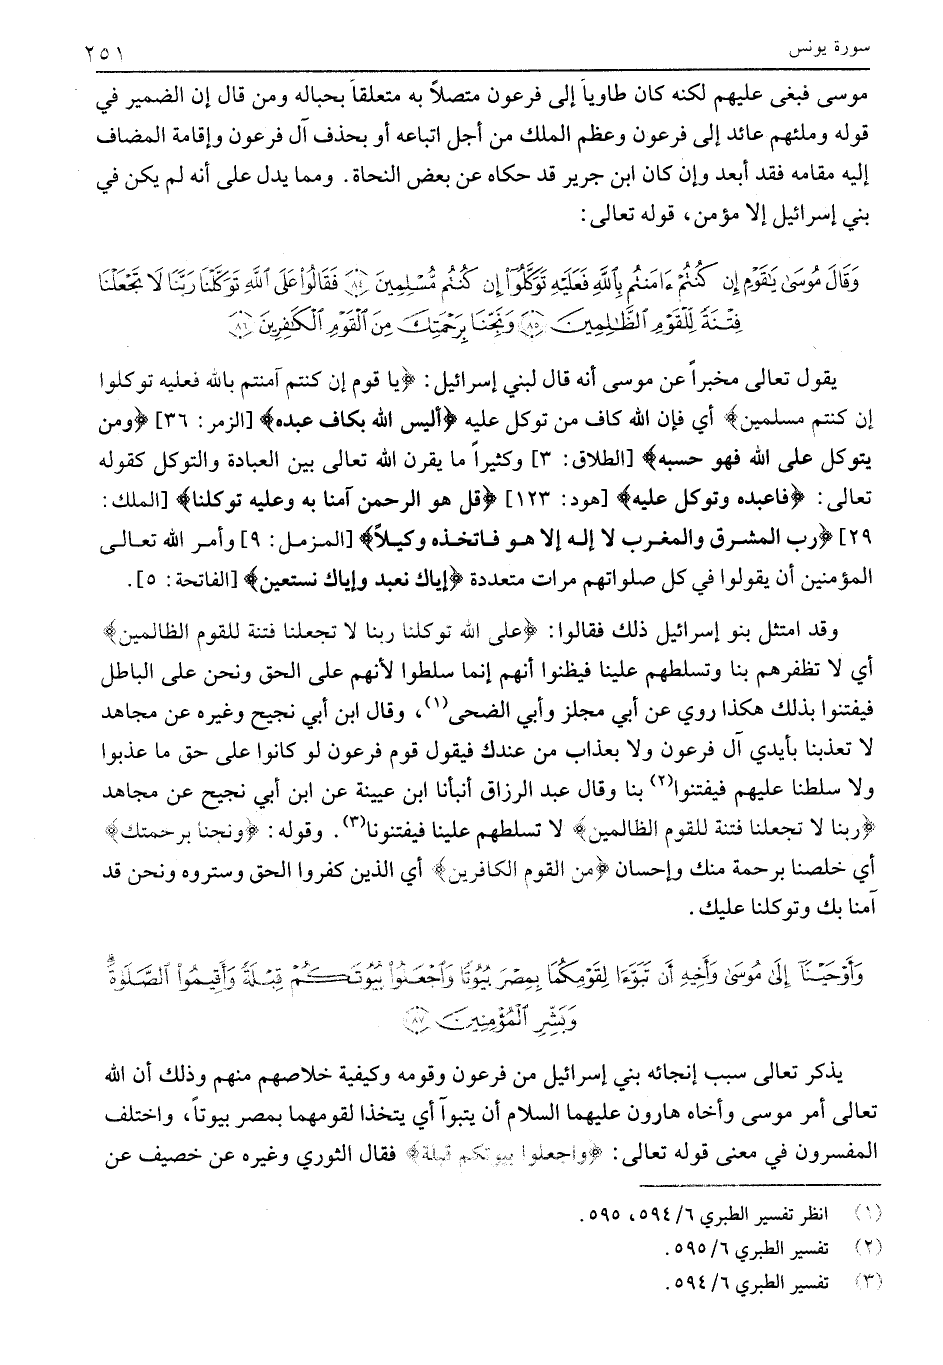 سورة يونس ٢٥١
موسى فبغى عليهم لكنه كان طاوياً إلى فرعون متصلاً به متعلقاً بحباله ومن قال إن الضمير في
قوله وملئهم عائد إلى فرعون وعظم الملك من أجل اتباعه أو بحذف آل فرعون وإقامة المضاف
إليه مقامه فقد أبعد وإن كان ابن جرير قد حكاه عن بعض النحاة. ومما يدل على أنه لم يكن في
بني إسرائيل إلا مؤمن، قوله تعالى:
وَقَالَ مُوسَىٰ يَٰقَوۡمِ إِن كُنتُمۡ ءَامَنتُم بِٱللَّهِ فَعَلَيۡهِ تَوَكَّلُوٓاْ إِن كُنتُم مُّسۡلِمِينَ ٨٤ فَقَالُواْ عَلَى ٱللَّهِ تَوَكَّلۡنَا رَبَّنَا لَا تَجۡعَلۡنَا
فِتۡنَةٗ لِّلۡقَوۡمِ ٱلظَّٰلِمِينَ ٨٥ وَنَجِّنَا بِرَحۡمَتِكَ مِنَ ٱلۡقَوۡمِ ٱلۡكَٰفِرِينَ ٨٦
يقول تعالى مخبراً عن موسى أنه قال لبني إسرائيل: ﴿يا قوم إن كنتم آمنتم بالله فعليه توكلوا
إن كنتم مسلمين﴾ أي فإن الله كاف من توكل عليه ﴿أليس الله بكاف عبده﴾ [الزمر: ٣٦] ﴿ومن
يتوكل على الله فهو حسبه﴾ [الطلاق: ٣] وكثيراً ما يقرن الله تعالى بين العبادة والتوكل كقوله
تعالى: ﴿فاعبده وتوكل عليه﴾ [هود: ١٢٣] ﴿قل هو الرحمن آمنا به وعليه توكلنا﴾ [الملك:
٢٩] ﴿رب المشرق والمغرب لا إله إلا هو فاتخذه وكيلاً﴾ [المزمل: ٩] وأمر الله تعالى
المؤمنين أن يقولوا في كل صلواتهم مرات متعددة ﴿إياك نعبد وإياك نستعين﴾ [الفاتحة: ٥].
وقد امتثل بنو إسرائيل ذلك فقالوا: ﴿على الله توكلنا ربنا لا تجعلنا فتنة للقوم الظالمين﴾
أي لا تظفرهم بنا وتسلطهم علينا فيظنوا أنهم إنما سلطوا لأنهم على الحق ونحن على الباطل
فيفتنوا بذلك هكذا روي عن أبي مجلز وأبي الضحى(١)، وقال ابن أبي نجيح وغيره عن مجاهد
لا تعذبنا بأيدي آل فرعون ولا بعذاب من عندك فيقول قوم فرعون لو كانوا على حق ما عذبوا
ولا سلطنا عليهم فيفتنوا(٢) بنا وقال عبد الرزاق أنبأنا ابن عيينة عن ابن أبي نجيح عن مجاهد
﴿ربنا لا تجعلنا فتنة للقوم الظالمين﴾ لا تسلطهم علينا فيفتنونا(٣). وقوله: ﴿ونجنا برحمتك﴾
أي خلصنا برحمة منك وإحسان ﴿من القوم الكافرين﴾ أي الذين كفروا الحق وستروه ونحن قد
آمنا بك وتوكلنا عليك.
وَأَوۡحَيۡنَآ إِلَىٰ مُوسَىٰ وَأَخِيهِ أَن تَبَوَّءَا لِقَوۡمِكُمَا بِمِصۡرَ بُيُوتٗا وَٱجۡعَلُواْ بُيُوتَكُمۡ قِبۡلَةٗ وَأَقِيمُواْ ٱلصَّلَوٰةَۗ
وَبَشِّرِ ٱلۡمُؤۡمِنِينَ ٨٧
يذكر تعالى سبب إنجائه بني إسرائيل من فرعون وقومه وكيفية خلاصهم منهم وذلك أن الله
تعالى أمر موسى وأخاه هارون عليهما السلام أن يتبوآ أي يتخذا لقومهما بمصر بيوتاً، واختلف
المفسرون في معنى قوله تعالى: ﴿واجعلوا بيوتكم قبلة﴾ فقال الثوري وغيره عن خصيف عن
(١) انظر تفسير الطبري ٦/ ٥٩٤، ٥٩٥.
(٢) تفسير الطبري ٦/ ٥٩٥.
(٣) تفسير الطبري ٦/ ٥٩٤.